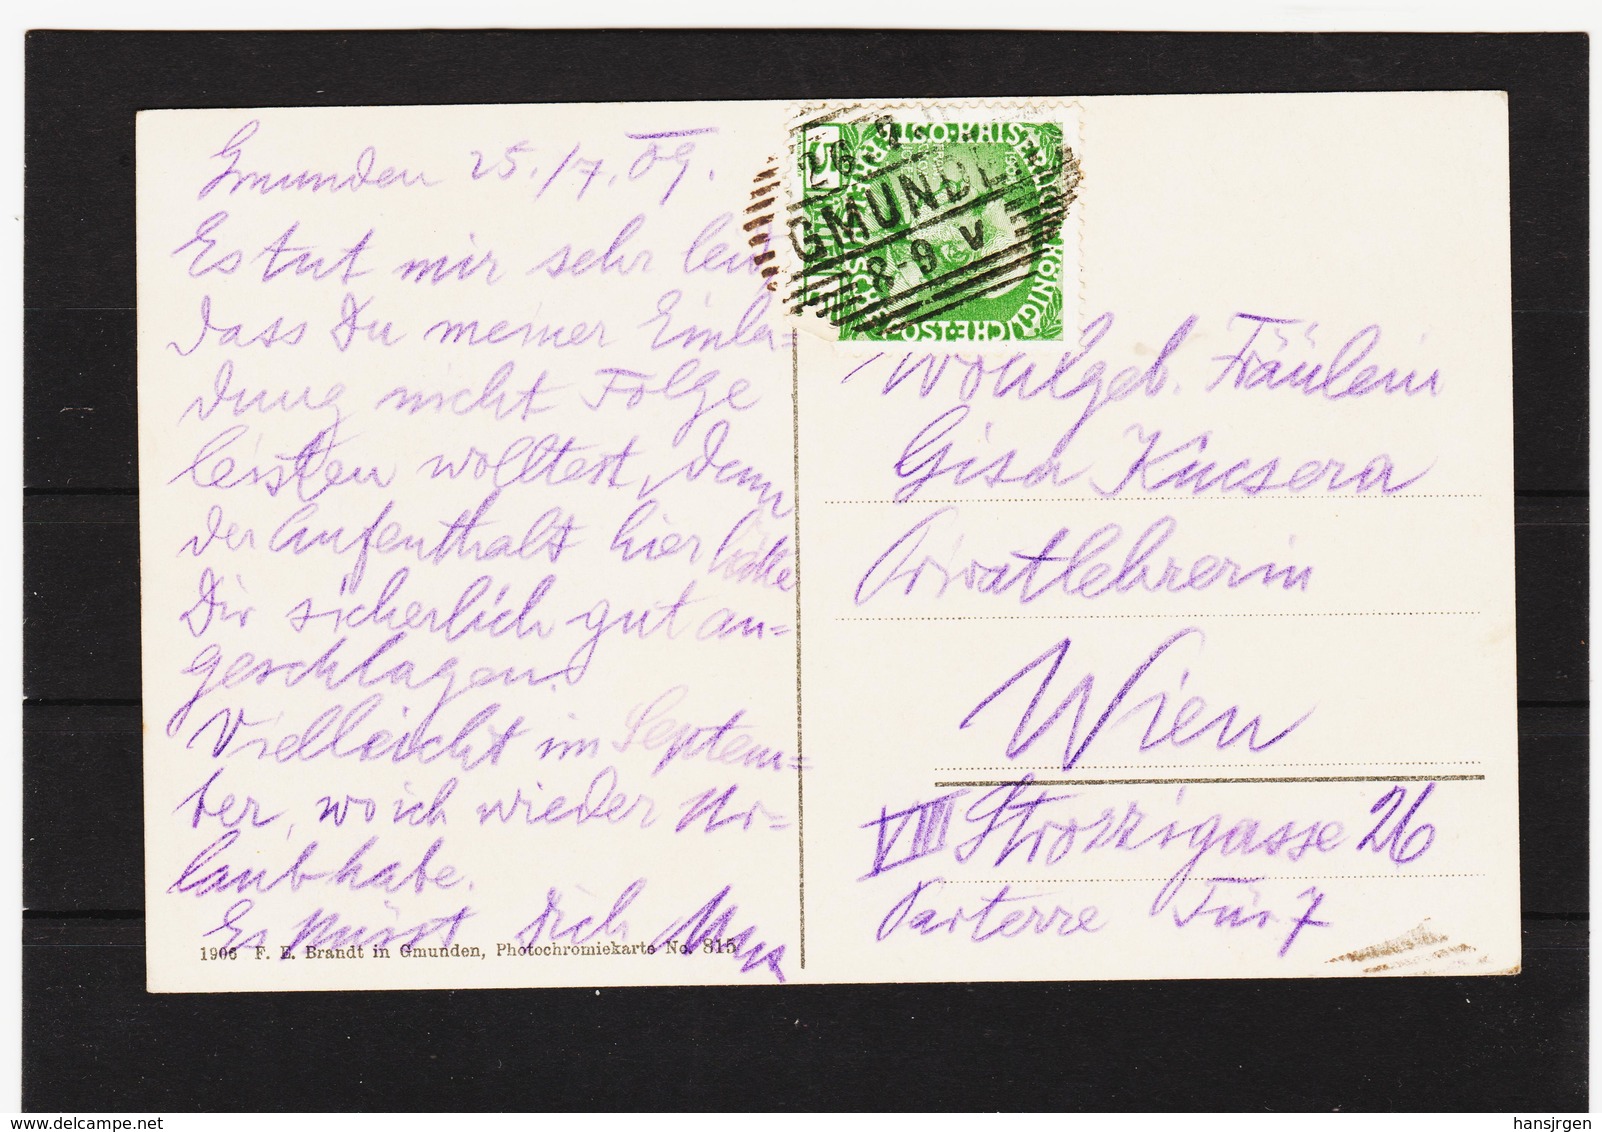 Gmunden 25./7. 09.
Es tut mir sehr leid
dass Du meiner Einla=
dung nicht Folge
leisten wolltest, denn
der Aufenthalt hier hätte
Dir sicherlich gut an=
geschlagen.
Vielleicht im Septem=
ber, wo ich wieder Ur=
laub habe.
Es küsst Dich
1906 F. E. Brandt in Gmunden, Photochromiekarte No. 815
26
GMUNDEN
8-9 V
Wohlgeb. Fräulein
Gisa Kucsera
Privatlehrerin
Wien
VIII Strozzigasse 26
Parterre Tür 7
hansjrgen